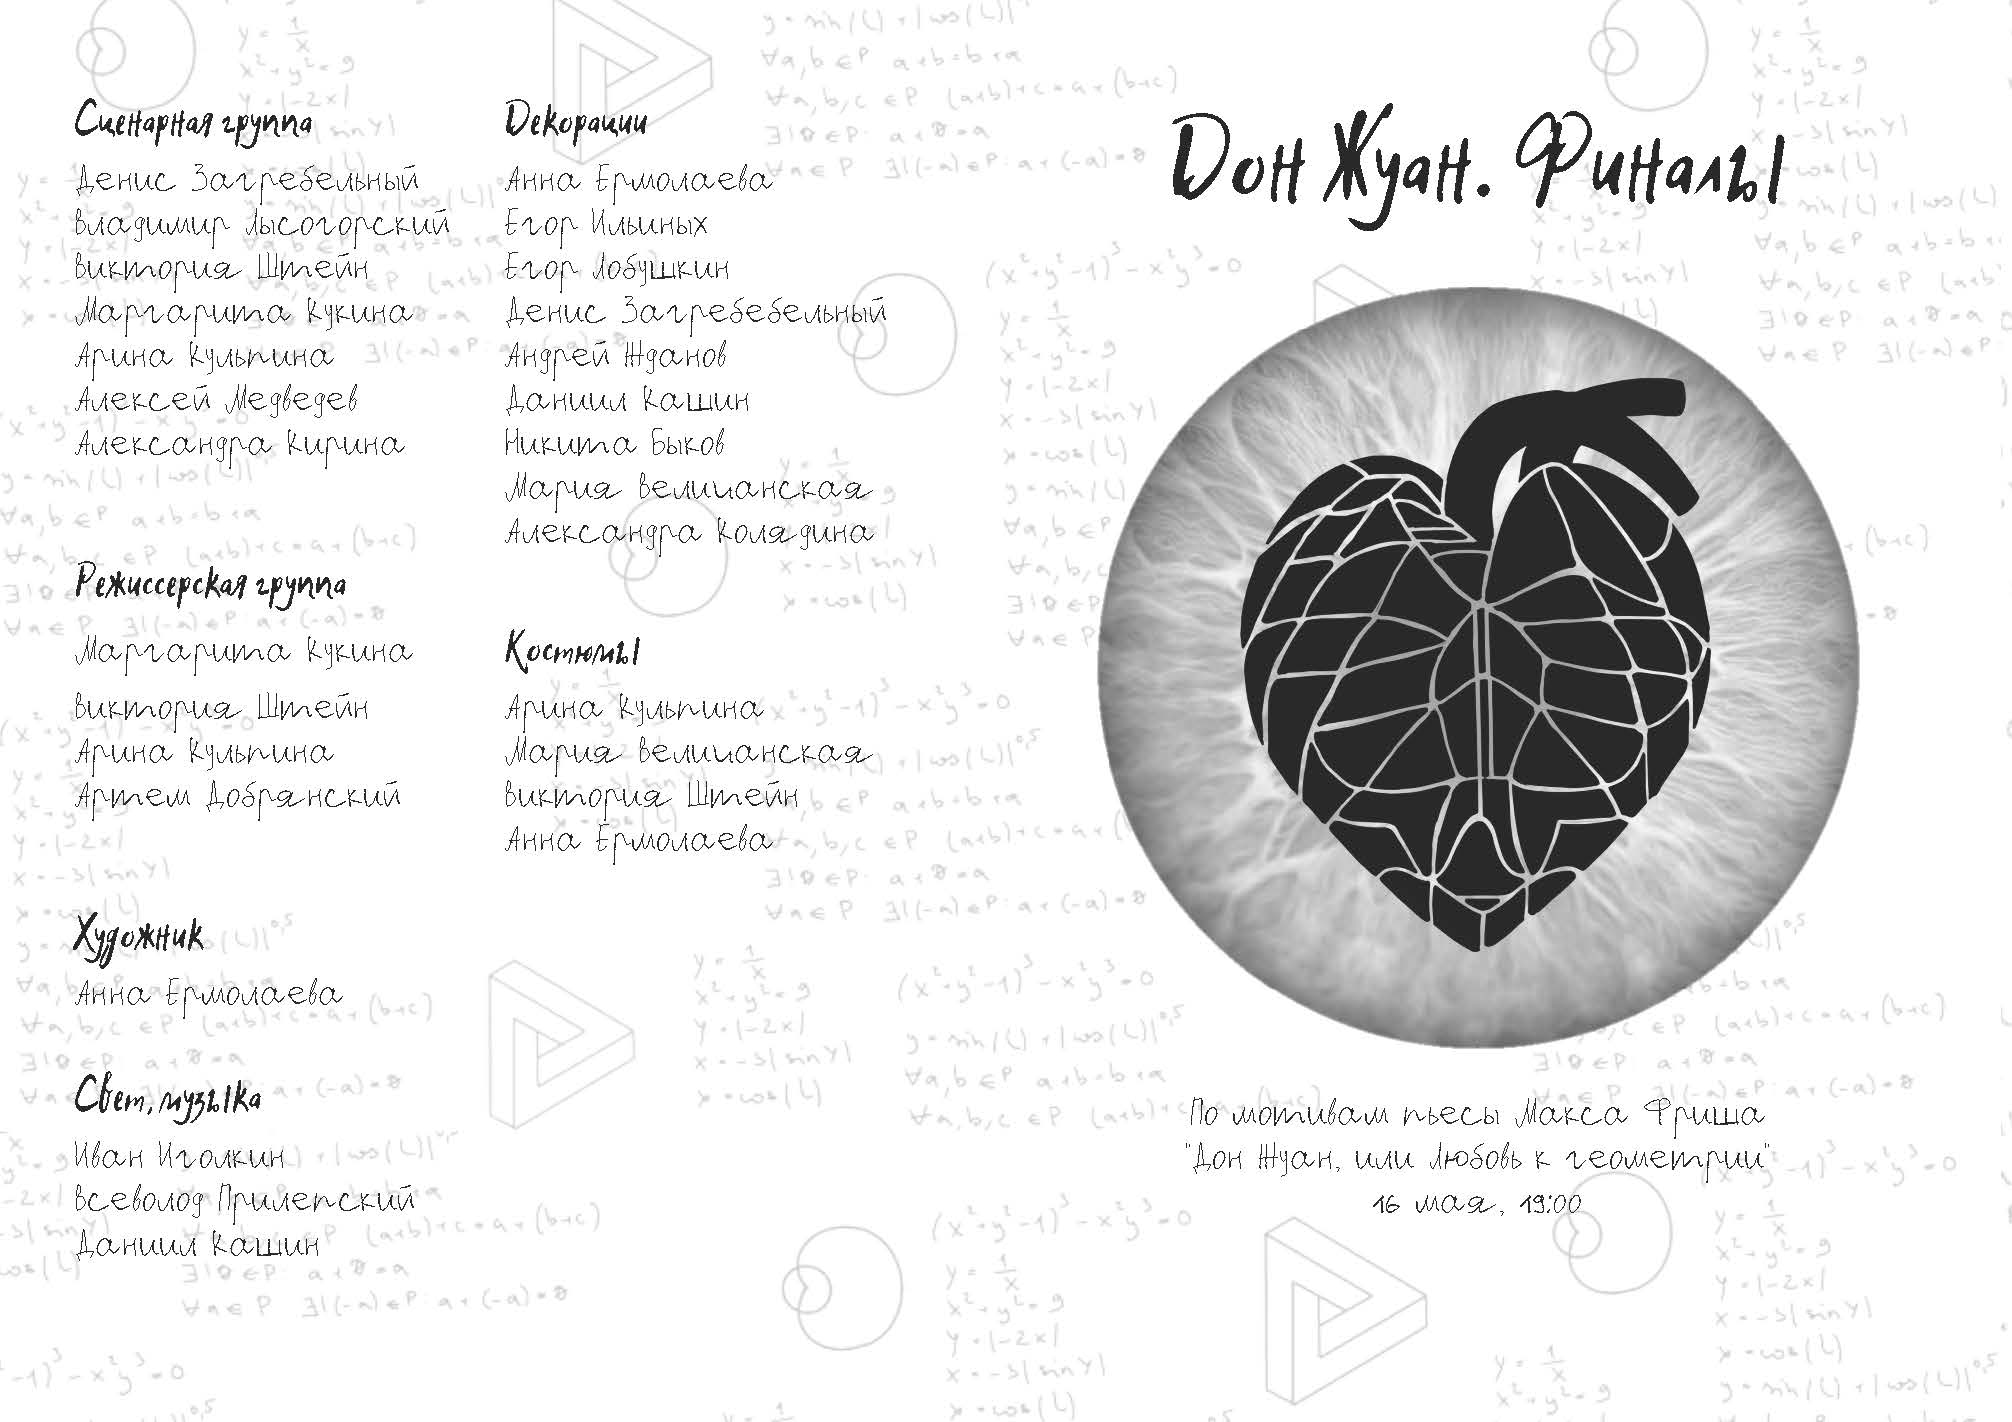 Сценарная группа
Денис Загребельный
Владимир Лысогорский
Виктория Штейн
Маргарита Кукина
Арина Кульпина
Алексей Медведев
Александра Кирина
Режиссерская группа
Маргарита Кукина
Виктория Штейн
Арина Кульпина
Артем Добрянский
Художник
Анна Ермолаева
Свет, музыка
Иван Иголкин
Всеволод Прилепский
Даниил Кашин
Декорации
Анна Ермолаева
Егор Ильиных
Егор Лобушкин
Денис Загребебельный
Андрей Жданов
Даниил Кашин
Никита Быков
Мария Величанская
Александра Колядина
Костюмы
Арина Кульпина
Мария Величанская
Виктория Штейн
Анна Ермолаева
Дон Жуан. Финалы
По мотивам пьесы Макса Фриша
"Дон Жуан, или Любовь к геометрии"
16 мая, 19:00